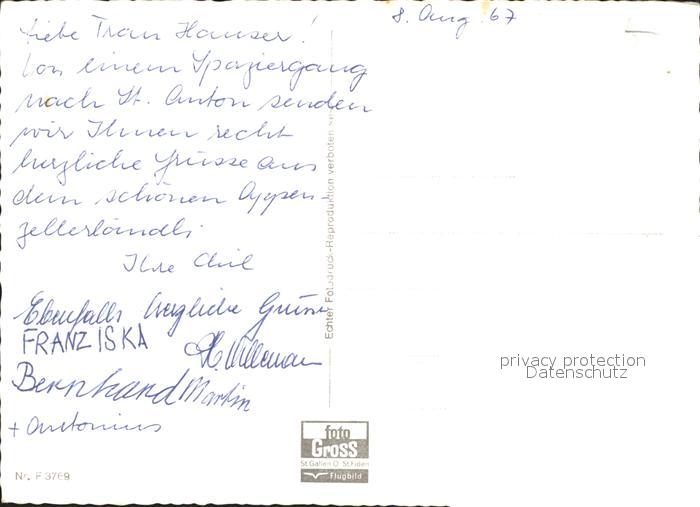 8. Aug. 67
Liebe Frau Hauser!
Von einem Spaziergang
nach St. Anton senden
wir Ihnen recht
herzliche Grüsse aus
dem schönen Appen-
zellerländli
Ihre
Ebenfalls herzliche Grüsse
FRANZISKA
Bernhard Martin
+ Antonius
Echter Fotodruck-Reproduktion verboten
privacy protection
Datenschutz
foto
Gross
St.Gallen O. St.Fiden
Flugbild
Nr. F 3769